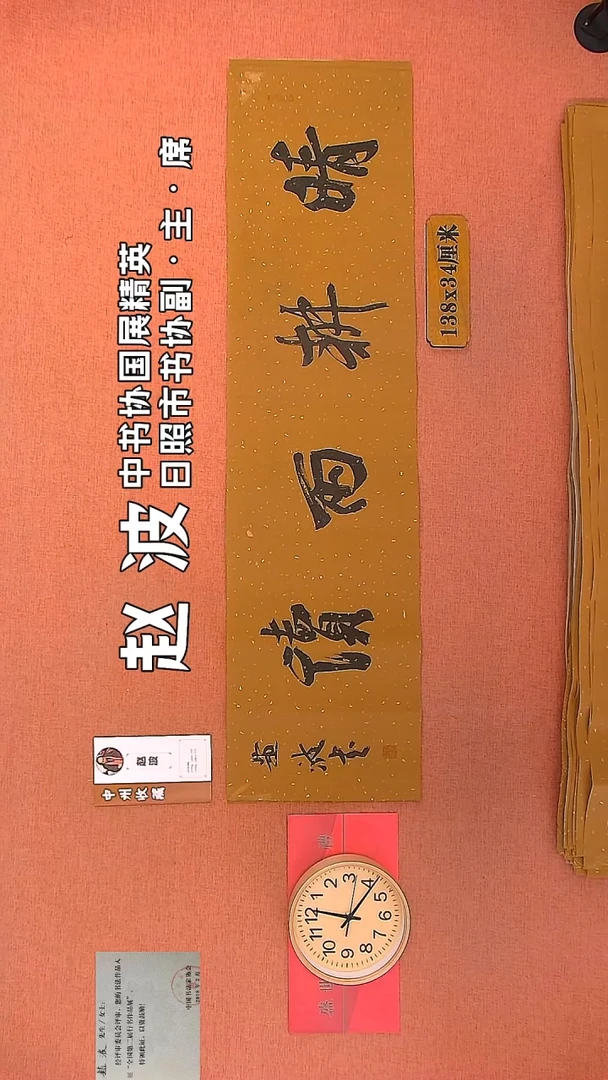 赵波
中书协国展精英
日照市书协副·主·席
晴耕雨讀
趙波书
138x34厘米
赵波
中州收藏
12
1
2
3
4
5
6
7
8
9
10
11
赵波 先生/女士：
经评审委员会评审，您的书法作品入
展“全国第二届行书作品展”，
特颁此证，以资鼓励！
中国书法家协会